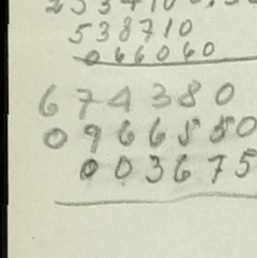 538710
066060
674380
0966550
003675